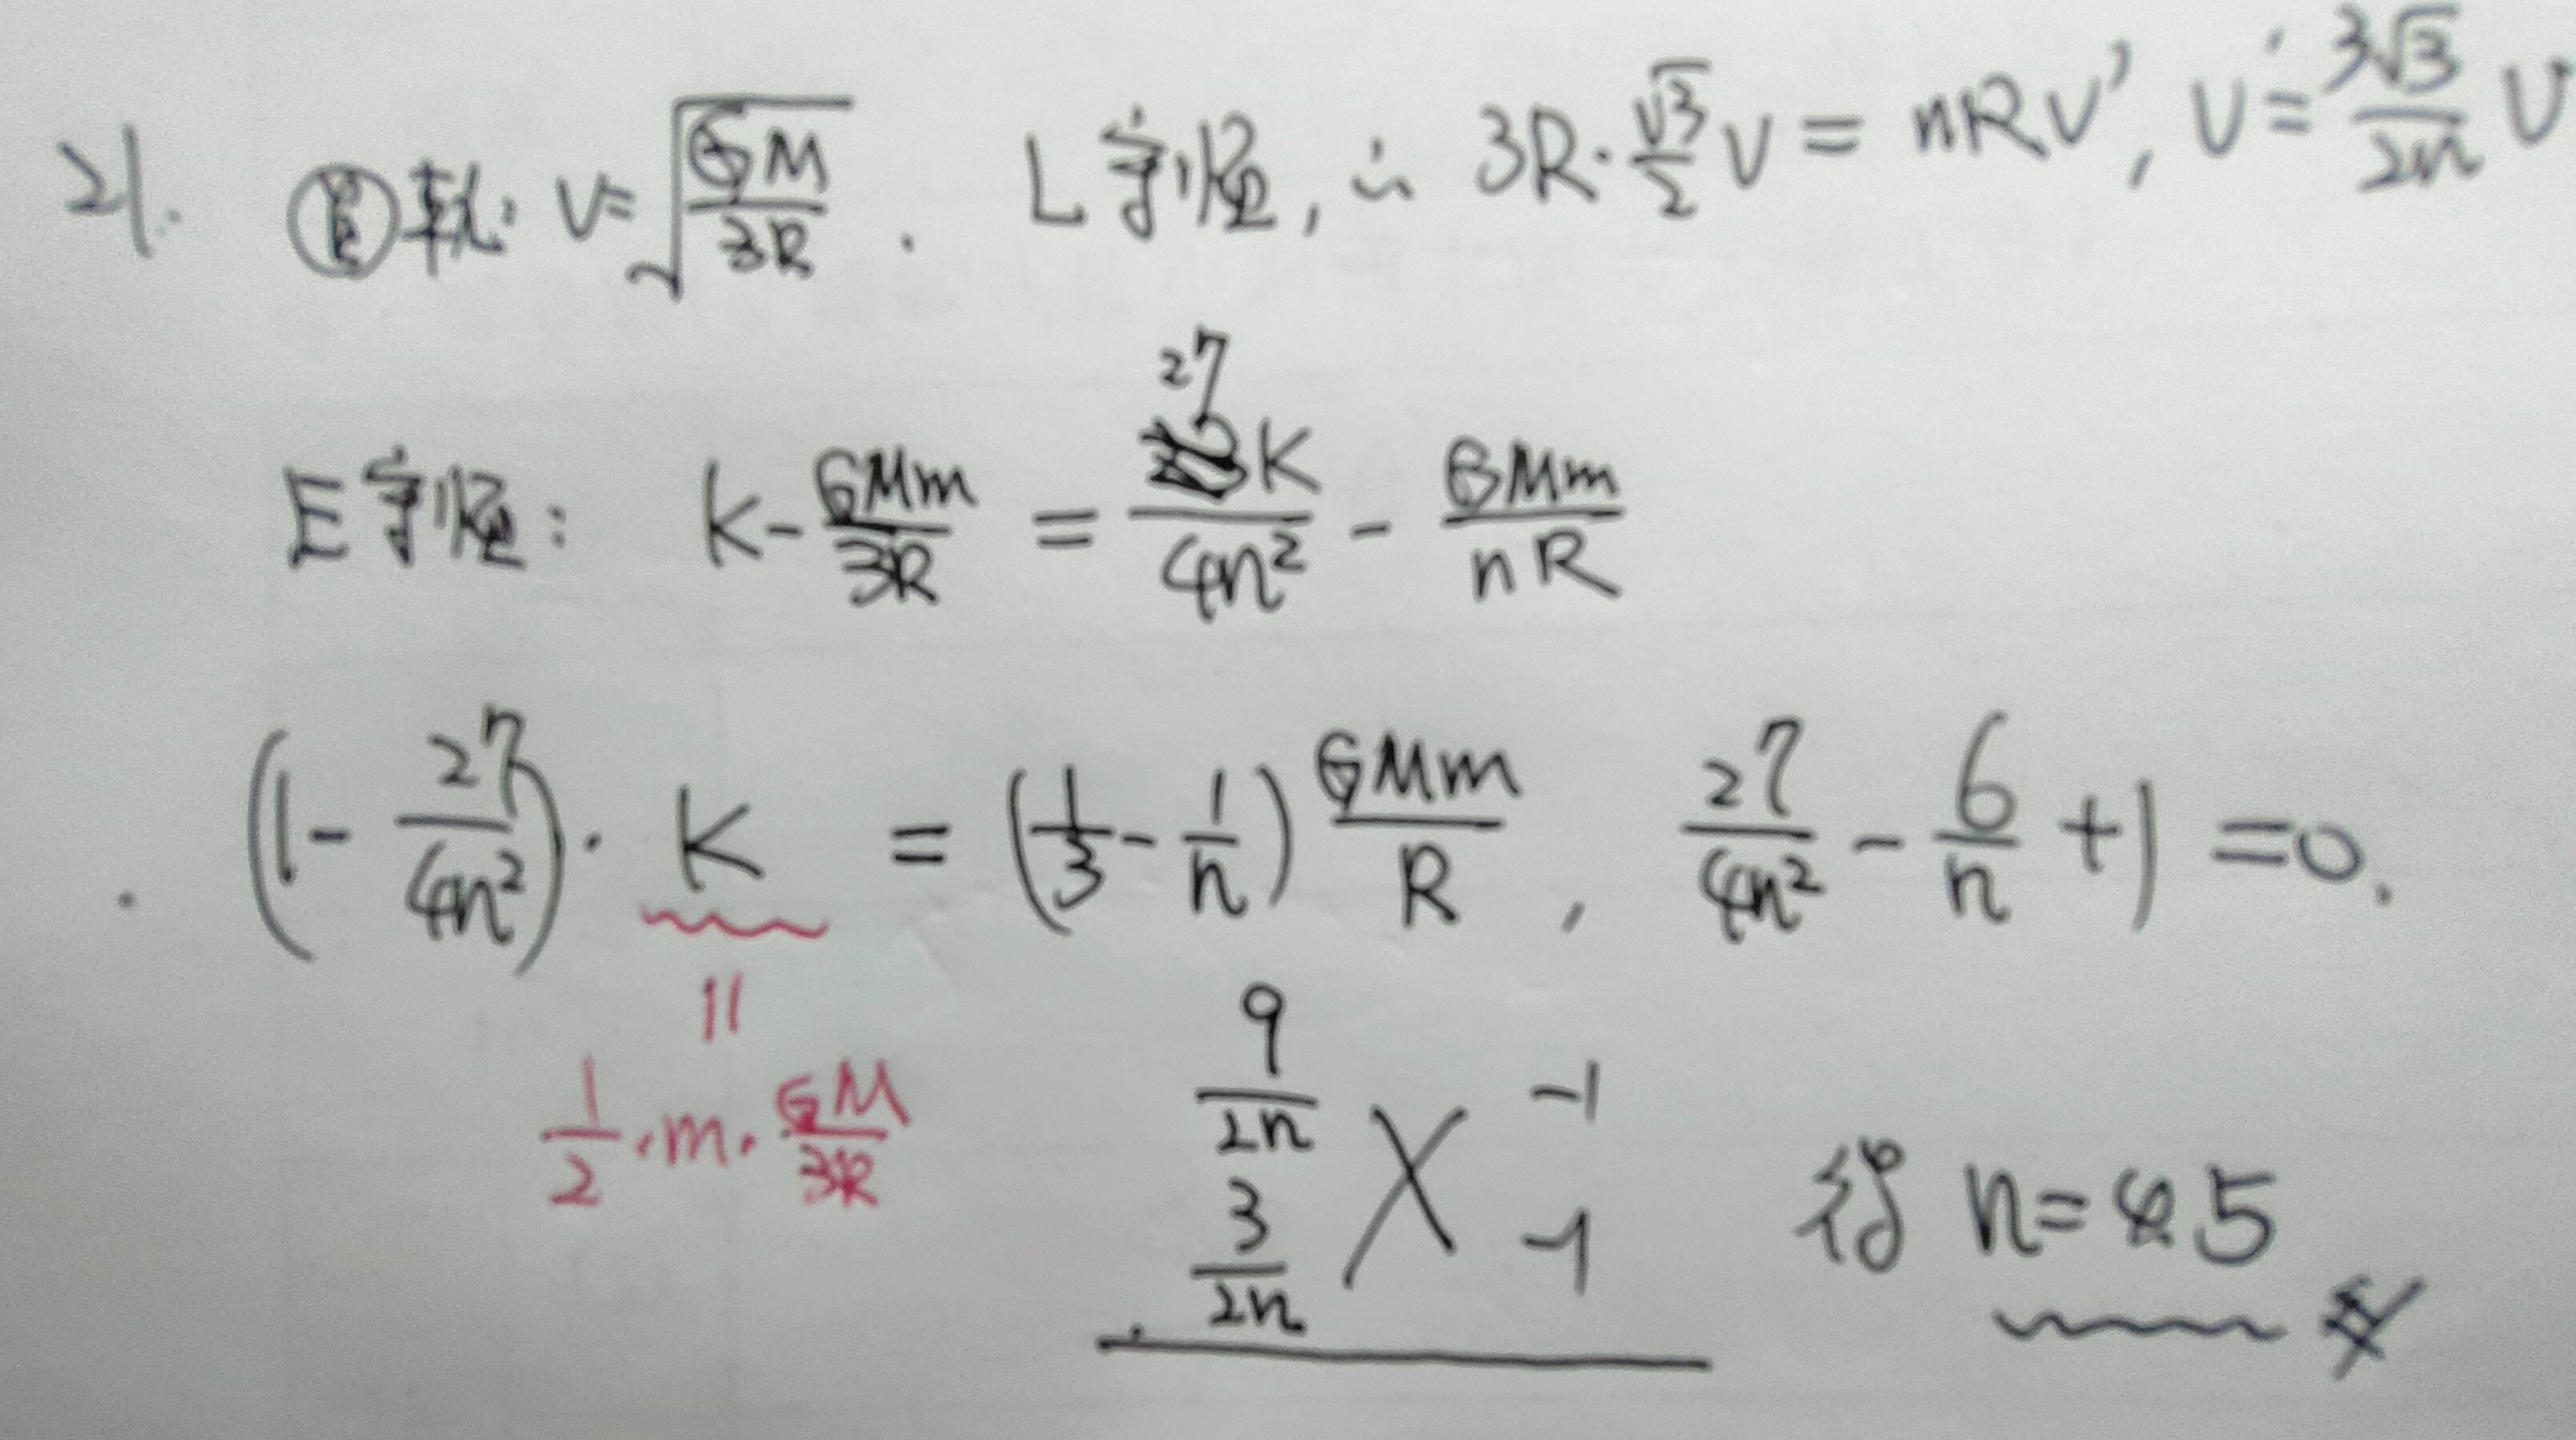 21. 圓軌: V=√(GM/3R). L守恆, ∴ 3R·(√3/2)V = nRV', V'=(3√3/2n)V
E守恆: K-GMm/3R = 27K/4n² - GMm/nR
(1-27/4n²)·K = (1/3-1/n)GMm/R, 27/4n² - 6/n +1 =0.
||
1/2·m·GM/3R
9/2n -1
3/2n -1
得 n=4.5